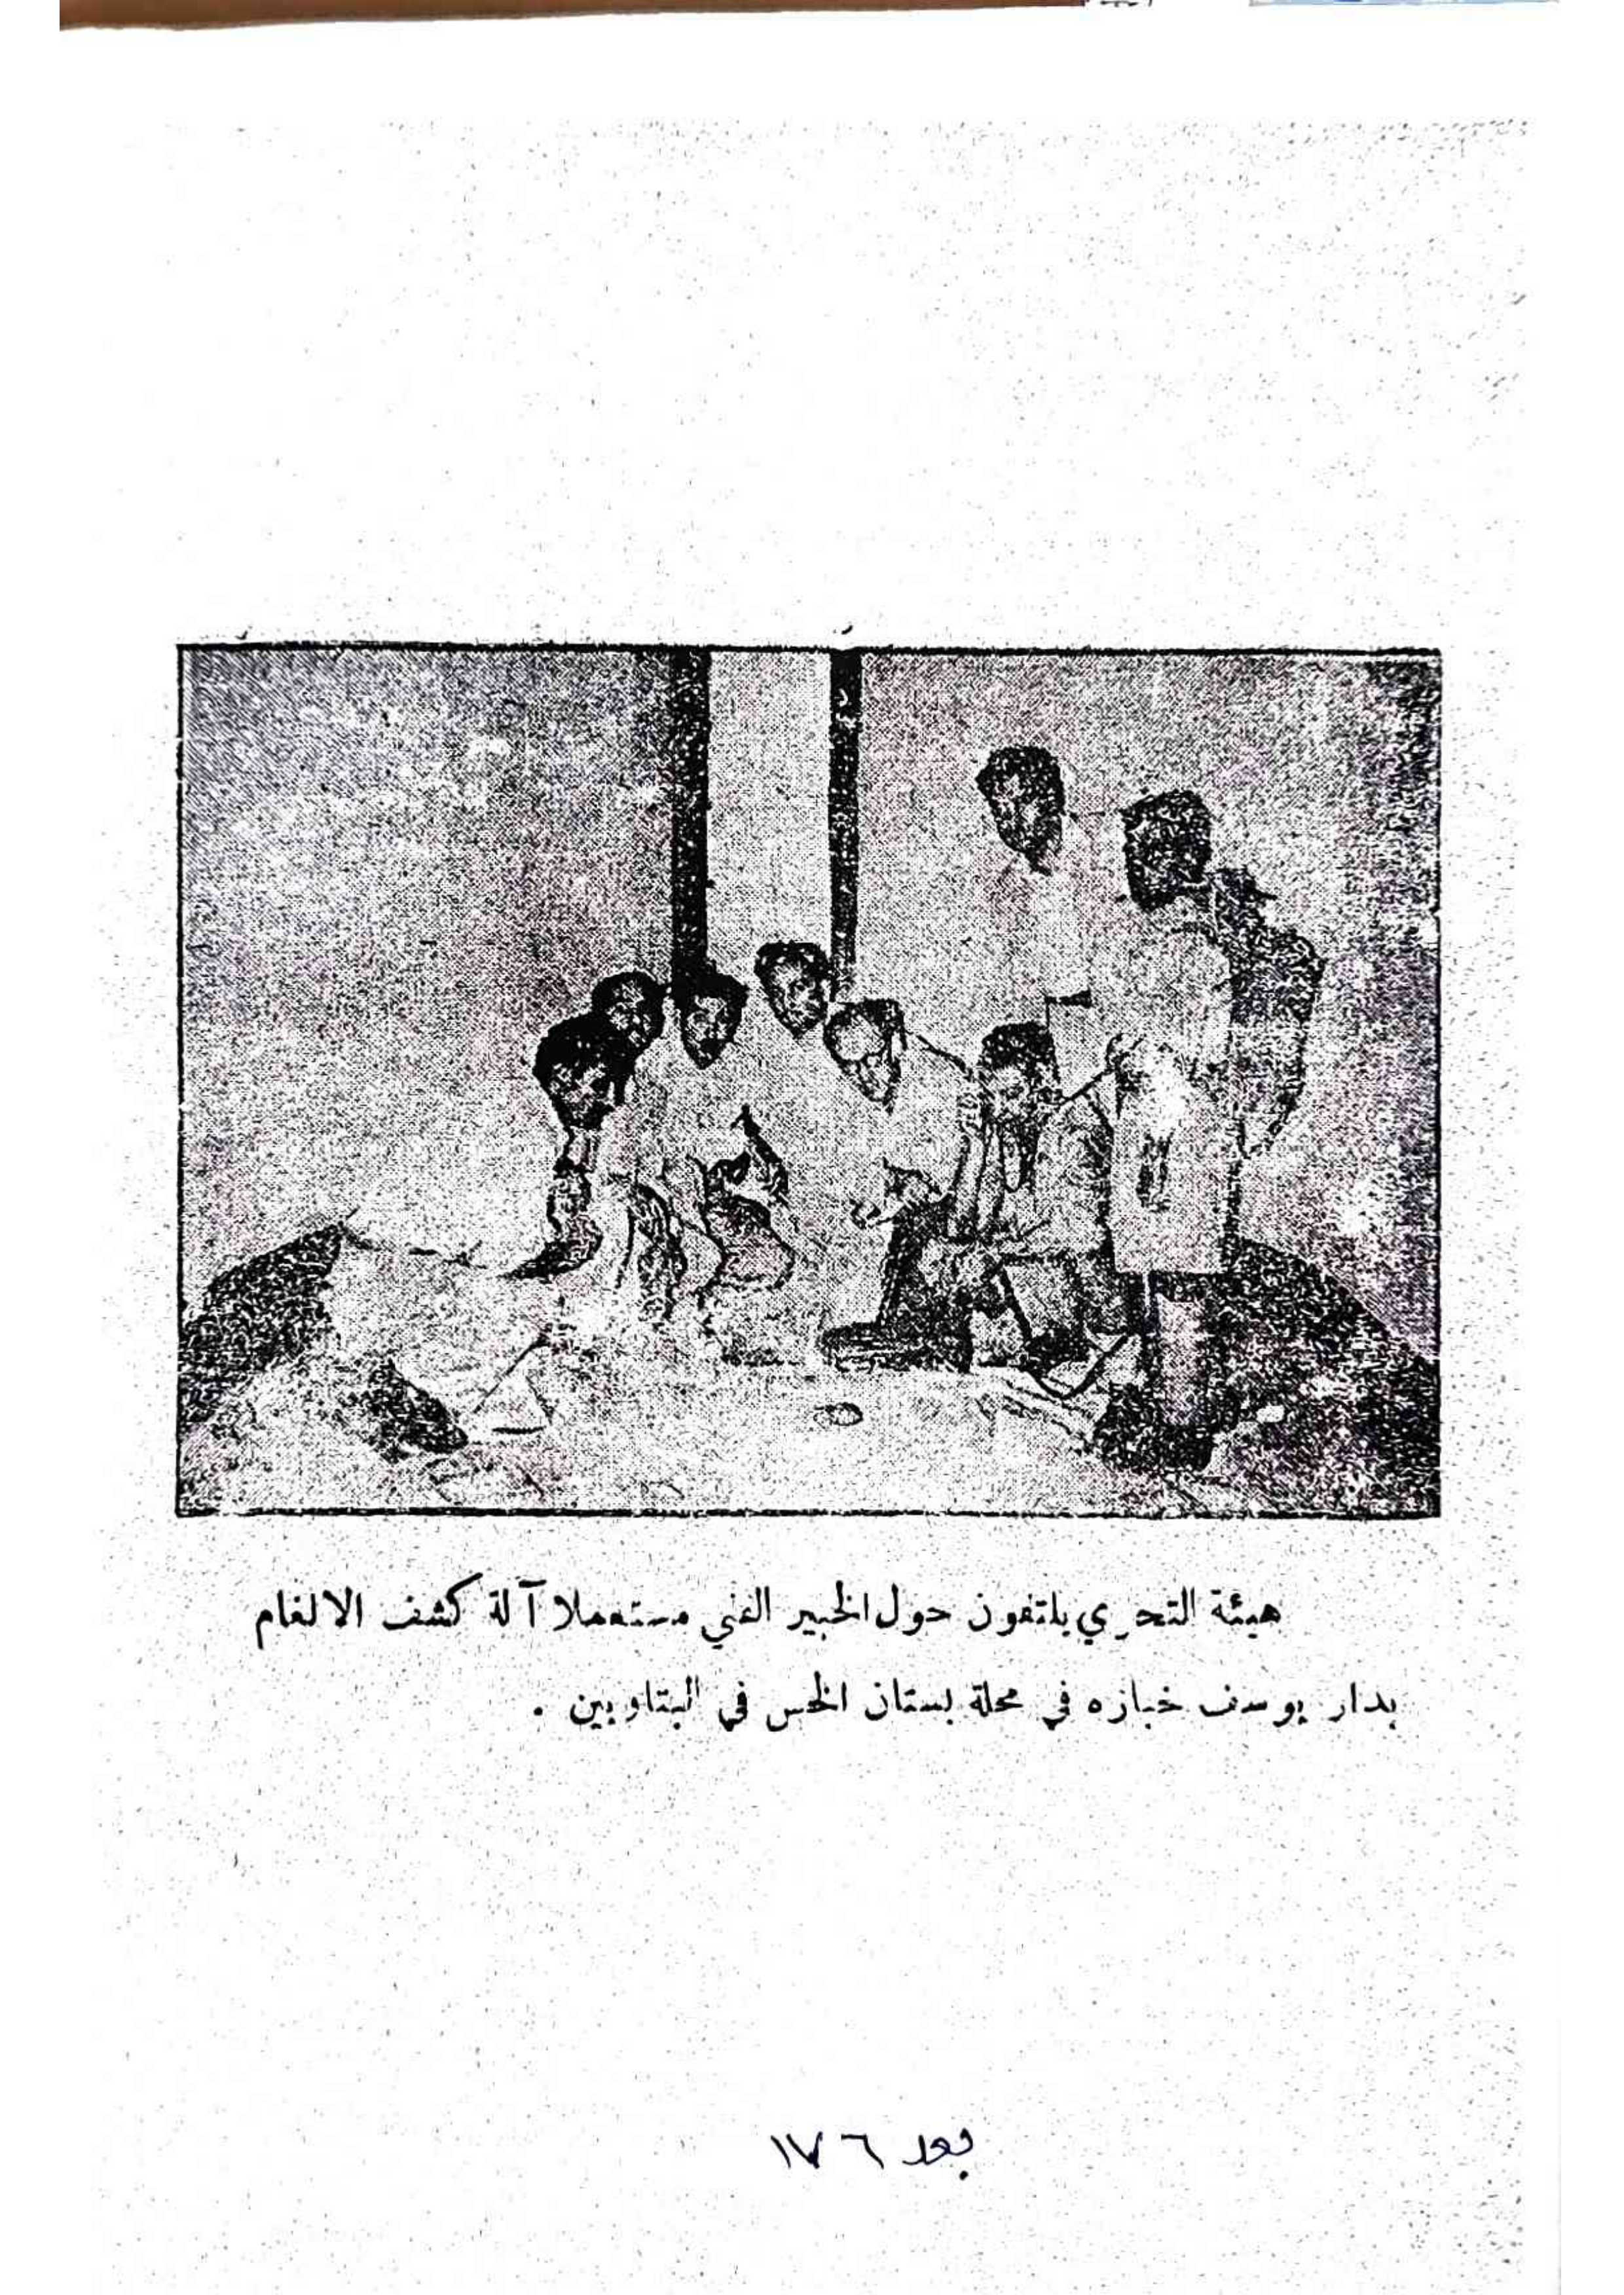 هيئة التحري يلتفون حول الخبير الفني مستعملا آلة كشف الالغام
بدار يوسف خبازه في محلة بستان الخس في البتاويين .
بعد ١٧٦